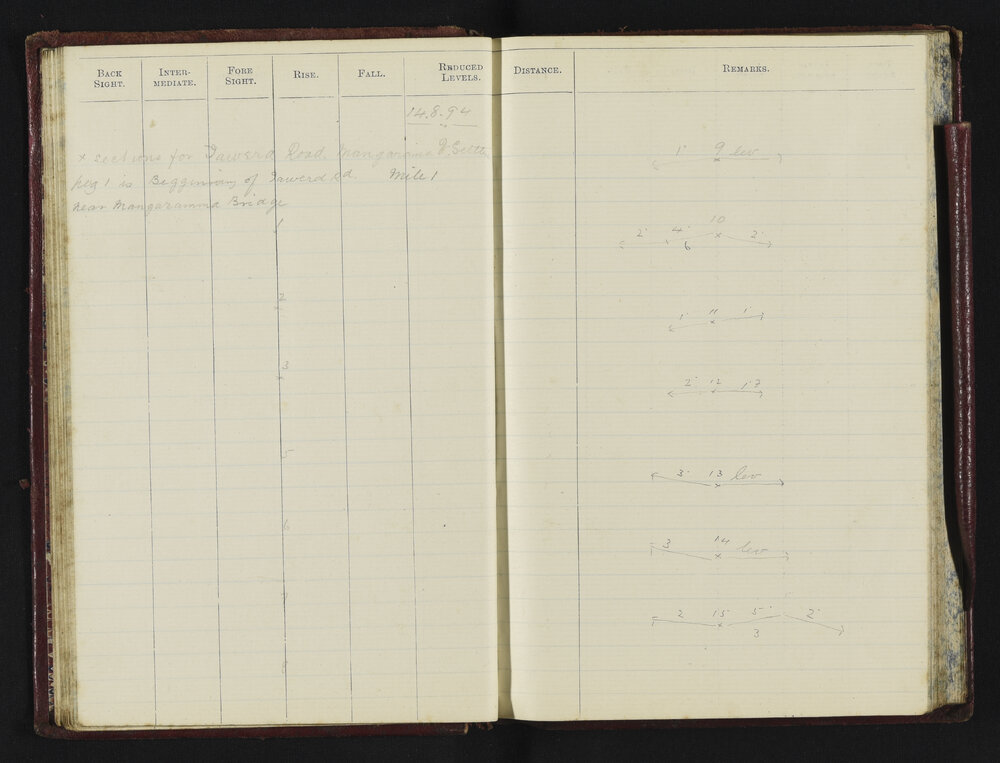 BACK SIGHT. INTER-MEDIATE. FORE SIGHT. RISE. FALL. REDUCED LEVELS. DISTANCE. REMARKS.
14.8.94
x sections for Tawera Road. Mangaramia D. Settl
peg 1 is Beggining of Tawera Rd. Mile 1
near Mangaramia Bridge
1
2
3
5
6
7
8
1 9 lev
10
2 4 6 2
1 11 1
2 12 17
3 13 lev
3 14 lev
2 15 5 2
3